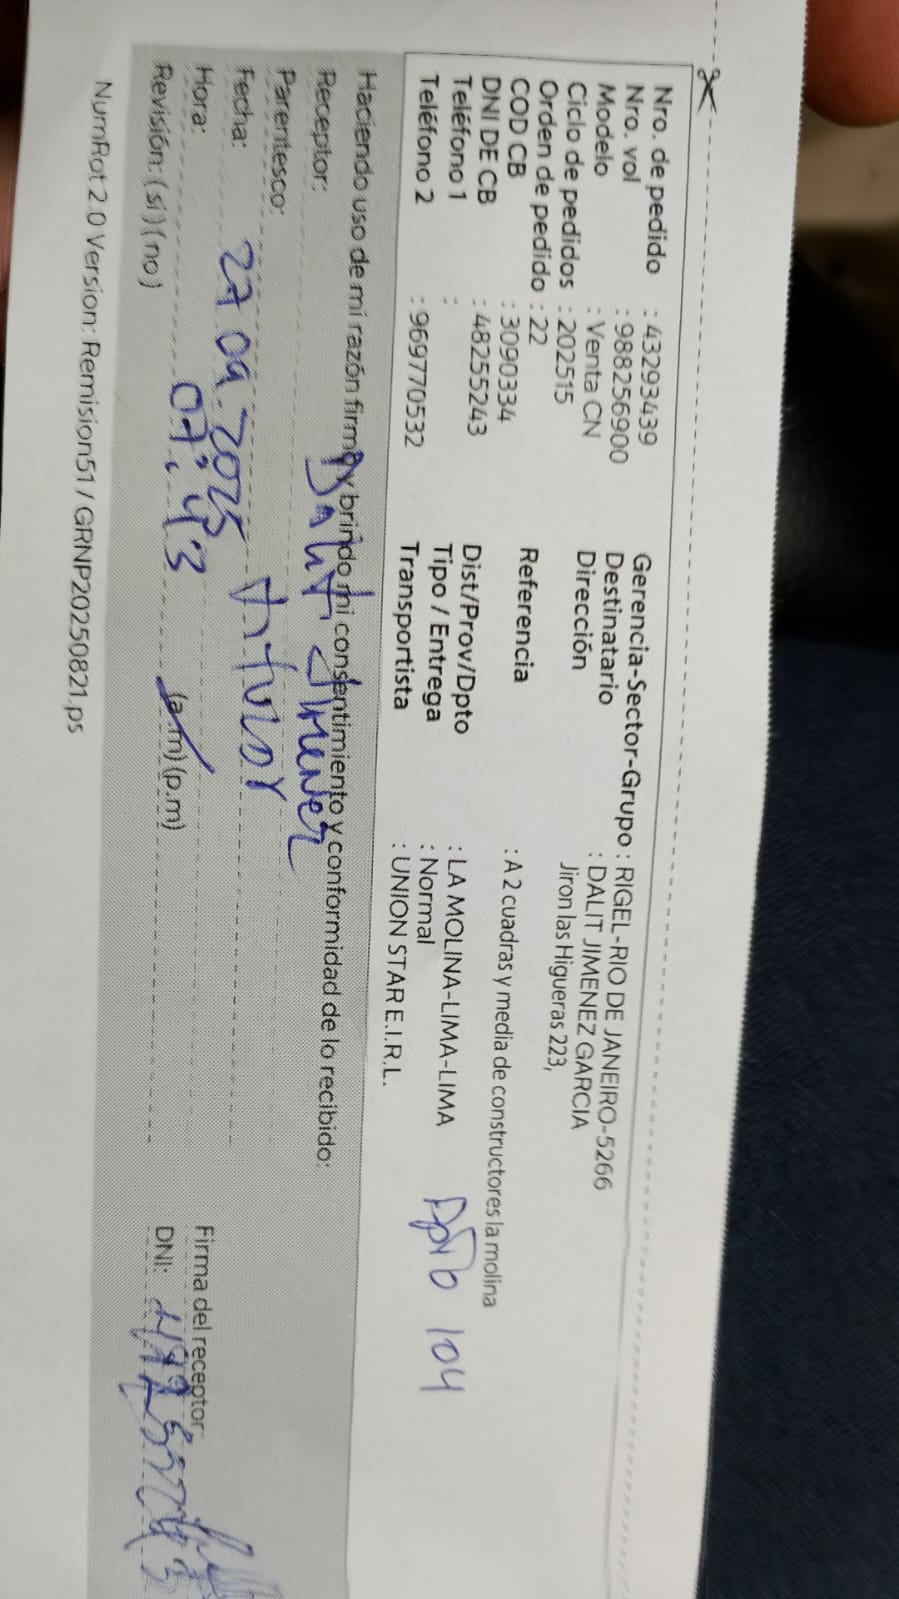 Nro. de pedido : 43293439
Nro. vol : 988256900
Modelo : Venta CN
Ciclo de pedidos : 202515
Orden de pedido : 22
COD CB : 3090334
DNI DE CB : 48255243
Teléfono 1 :
Teléfono 2 : 969770532
Gerencia-Sector-Grupo : RIGEL-RIO DE JANEIRO-5266
Destinatario : DALIT JIMENEZ GARCIA
Dirección Jiron las Higueras 223,
Referencia : A 2 cuadras y media de constructores la molina
Dist/Prov/Dpto : LA MOLINA-LIMA-LIMA
Tipo / Entrega : Normal
Transportista : UNION STAR E.I.R.L.
104
Haciendo uso de mi razón firmo y brindo mi consentimiento y conformidad de lo recibido:
Receptor: Dalit Jimenez
Parentesco:
Fecha: 27 09 2025
Hora: 07:43 (a.m) (p.m)
Revisión: (si) (no)
Firma del receptor:
DNI: 48255243
NumRot 2.0 Version: Remision51 / GRNP20250821.ps